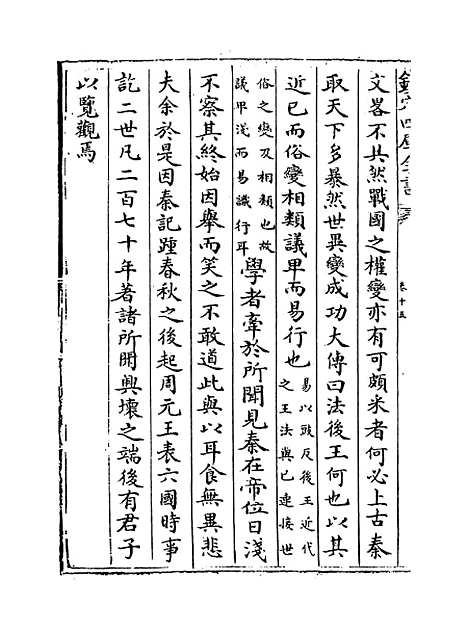 欽定四庫全書
卷十五
文畧不具然戰國之權變亦有可頗采者何必上古秦
取天下多暴然世異變成功大傳曰法後王何也以其
近已而俗變相類議卑而易行也易以豉反後王近代之王法與已連接世
俗之變及相類也故議卑淺而易識行耳學者牽於所聞見秦在帝位日淺
不察其終始因舉而笑之不敢道此與以耳食無異悲
夫余於是因秦記踵春秋之後起周元王表六國時事
訖二世凡二百七十年著諸所聞興壞之端後有君子
以覽觀焉